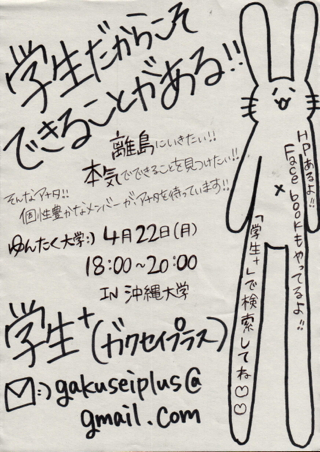 学生だからこそ
できることがある!!
離島にいきたい!!
本気でできることを見つけたい!!
そんなアナタ!!
個性豊かなメンバーがアナタを待っています!!
ゆんたく大学:) 4月22日(月)
18:00~20:00
IN 沖縄大学
学生+(ガクセイプラス)
:) gakuseiplus@
gmail.com
HPあるよ!!
Facebookもやってるよ!!
「学生+」で検索してね♡♡